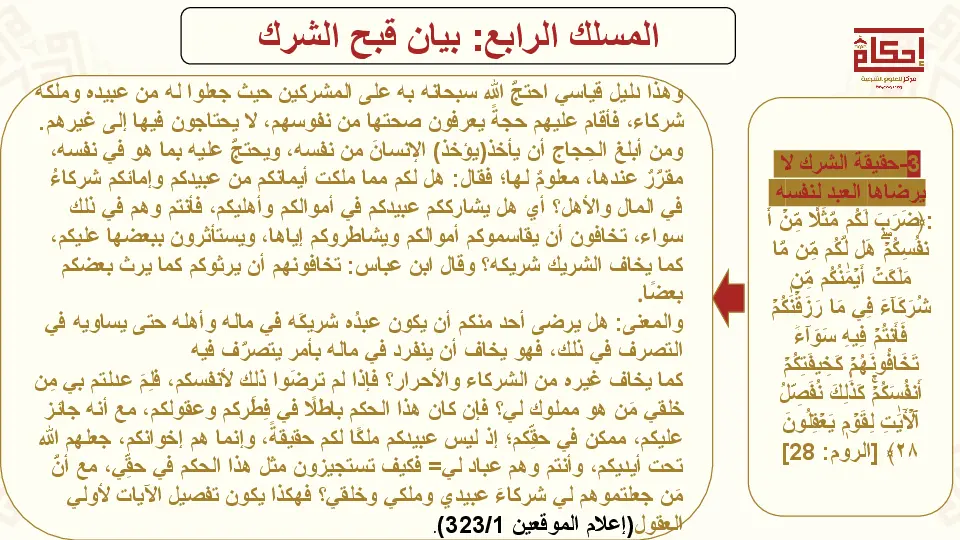 المسلك الرابع: بيان قبح الشرك
إحكام
مركز للعلوم الشرعية
3-حقيقة الشرك لا
يرضاها العبد لنفسه
:﴿ضَرَبَ لَكُم مَّثَلٗا مِّنۡ أَ
نفُسِكُمۡۖ هَل لَّكُم مِّن مَّا
مَلَكَتۡ أَيۡمَٰنُكُم مِّن
شُرَكَآءَ فِي مَا رَزَقۡنَٰكُمۡ
فَأَنتُمۡ فِيهِ سَوَآءٞ
تَخَافُونَهُمۡ كَخِيفَتِكُمۡ
أَنفُسَكُمۡۚ كَذَٰلِكَ نُفَصِّلُ
ٱلۡأٓيَٰتِ لِقَوۡمٖ يَعۡقِلُونَ
٢٨﴾ [الروم: 28]
وهذا دليل قياسي احتجَّ الله سبحانه به على المشركين حيث جعلوا له من عبيده وملكه
شركاء، فأقام عليهم حجةً يعرفون صحتها من نفوسهم، لا يحتاجون فيها إلى غيرهم.
ومن أبلغ الحِجاج أن يأخذ(يؤخذ) الإنسانَ من نفسه، ويحتجُّ عليه بما هو في نفسه،
مقرَّرٌ عندها، معلومٌ لها؛ فقال: هل لكم مما ملكت أيمانكم من عبيدكم وإمائكم شركاءُ
في المال والأهل؟ أي هل يشارككم عبيدكم في أموالكم وأهليكم، فأنتم وهم في ذلك
سواء، تخافون أن يقاسموكم أموالكم ويشاطروكم إياها، ويستأثرون ببعضها عليكم،
كما يخاف الشريك شريكه؟ وقال ابن عباس: تخافونهم أن يرثوكم كما يرث بعضكم
بعضًا.
والمعنى: هل يرضى أحد منكم أن يكون عبدُه شريكَه في ماله وأهله حتى يساويه في
التصرف في ذلك، فهو يخاف أن ينفرد في ماله بأمر يتصرَّف فيه
كما يخاف غيره من الشركاء والأحرار؟ فإذا لم ترضَوا ذلك لأنفسكم، فلِمَ عدلتم بي مِن
خلقي مَن هو مملوك لي؟ فإن كان هذا الحكم باطلًا في فِطَركم وعقولكم، مع أنه جائز
عليكم، ممكن في حقِّكم؛ إذ ليس عبيدكم ملكًا لكم حقيقةً، وإنما هم إخوانكم، جعلهم الله
تحت أيديكم، وأنتم وهم عباد لي= فكيف تستجيزون مثل هذا الحكم في حقِّي، مع أنَّ
مَن جعلتموهم لي شركاءَ عبيدي وملكي وخلقي؟ فهكذا يكون تفصيل الآيات لأولي
العقول(إعلام الموقعين 323/1).